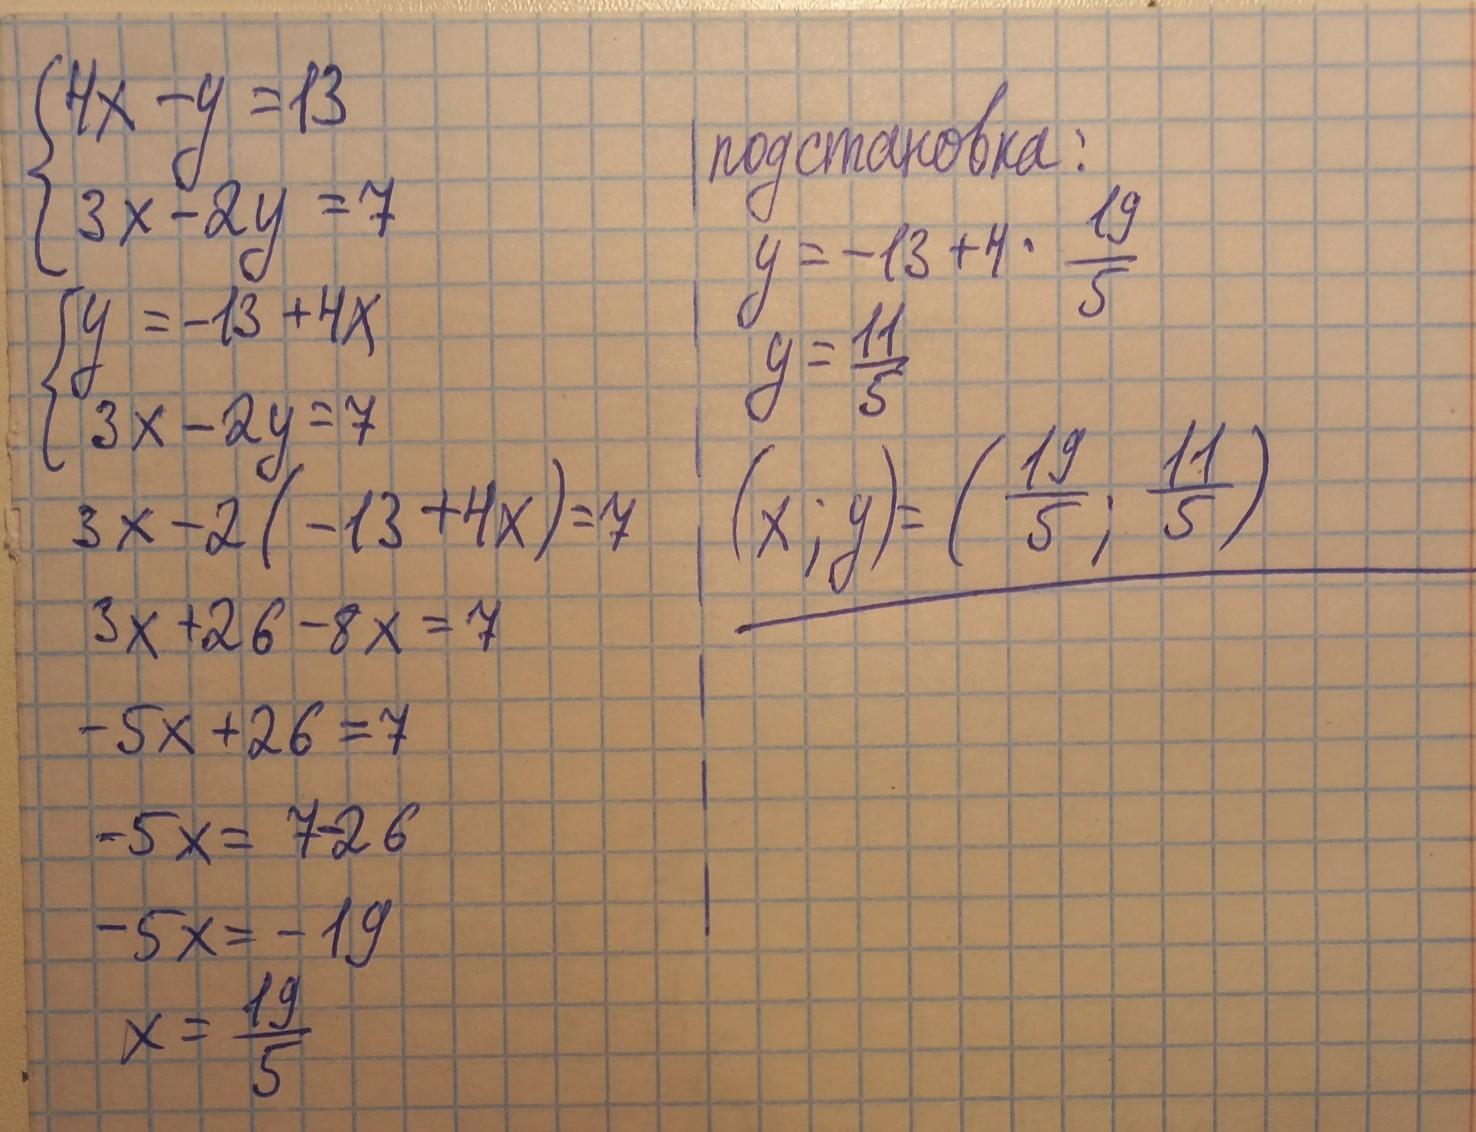 4x - y = 13
3x - 2y = 7
y = -13 + 4x
3x - 2y = 7
3x - 2(-13 + 4x) = 7
3x + 26 - 8x = 7
-5x + 26 = 7
-5x = 7-26
-5x = -19
x = 19/5
подстановка:
y = -13 + 4 · 19/5
y = 11/5
(x; y) = (19/5; 11/5)